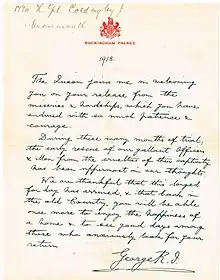 BUCKINGHAM PALACE
1918.
The Queen joins me in welcoming
you on your release from the
miseries & hardships, which you have
endured with so much patience &
courage.
During these many months of trial,
the early rescue of our gallant Officers
& Men from the cruelties of their captivity
has been uppermost in our thoughts.
We are thankful that this longed
for day has arrived, & that back in
the old Country, you will be able
once more to enjoy the happiness of
a home & to see good days among
those who anxiously look for your
return.
George R.I.